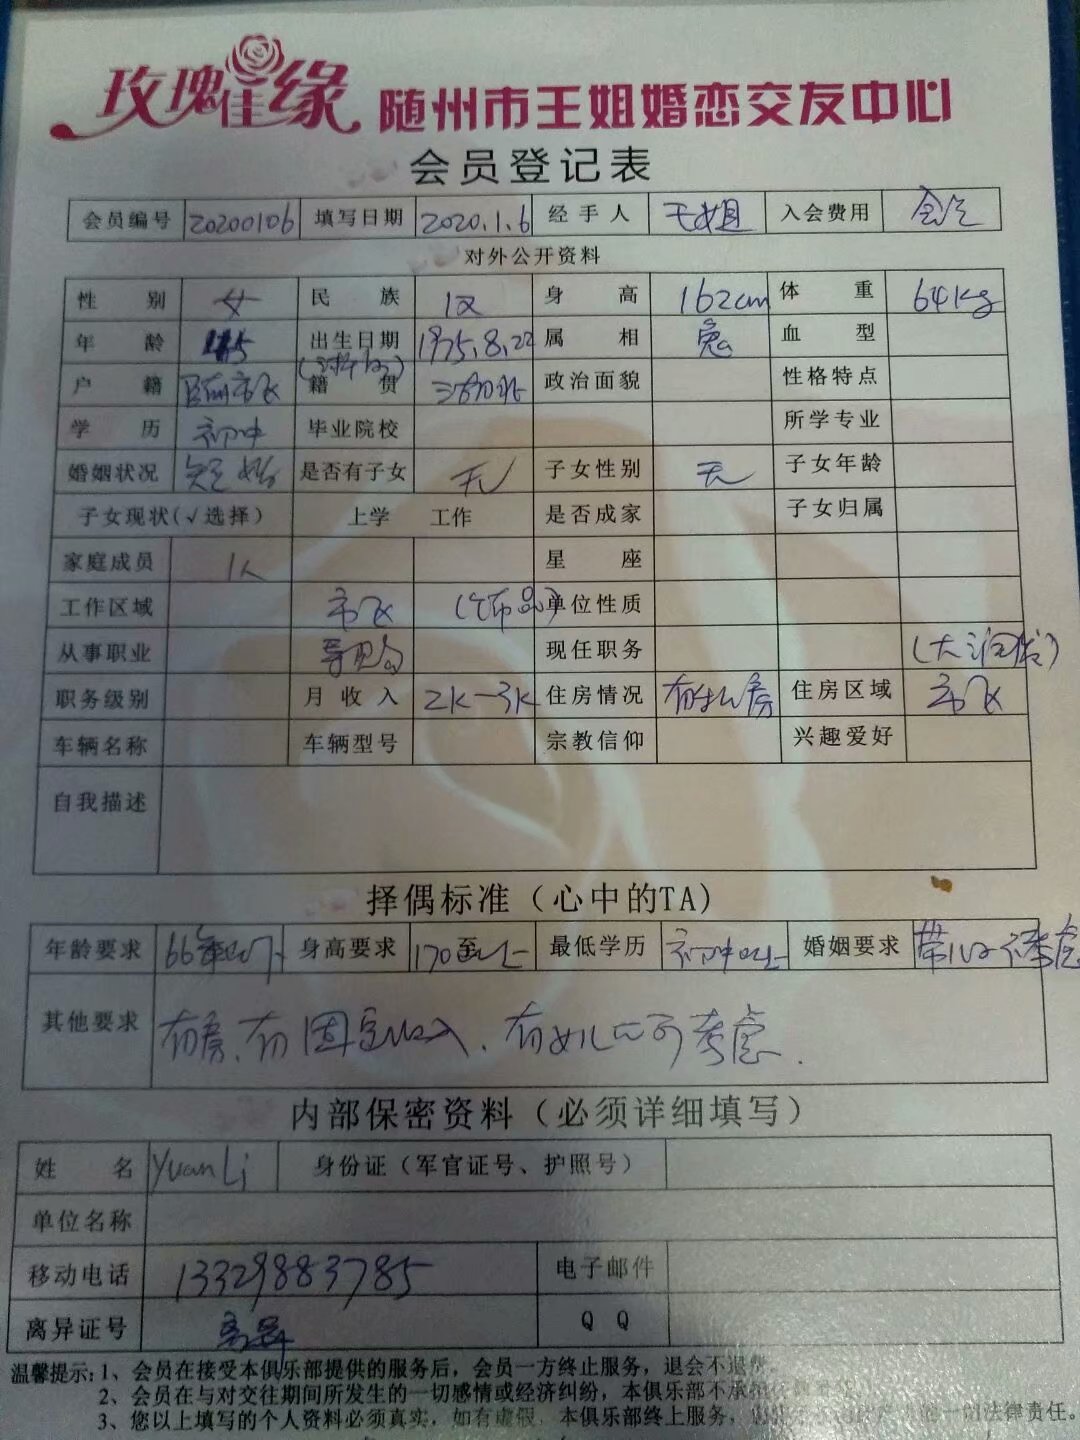 玫瑰佳缘 随州市王姐婚恋交友中心
会员登记表
会员编号 20200106 填写日期 2020.1.6 经手人 王姐 入会费用
对外公开资料
性别 女 民族 汉 身高 162cm 体重 64kg
年龄 45 出生日期 1975.8.22 属相 兔 血型
户籍 籍贯 湖北 政治面貌 性格特点
学历 初中 毕业院校 所学专业
婚姻状况 短婚 是否有子女 无 子女性别 无 子女年龄
子女现状(√选择) 上学 工作 是否成家 子女归属
家庭成员 1人 星座
工作区域 单位性质
从事职业 导购 现任职务 (大润发)
职务级别 月收入 2K-3K 住房情况 有私房 住房区域
车辆名称 车辆型号 宗教信仰 兴趣爱好
自我描述
择偶标准（心中的TA)
年龄要求 66年以下 身高要求 170至以上 最低学历 初中以上 婚姻要求
其他要求 有房、有固定收入、有女儿也可考虑.
内部保密资料（必须详细填写）
姓名 Yuan Li 身份证（军官证号、护照号）
单位名称
移动电话 13329883785 电子邮件
离异证号 离异 QQ
温馨提示: 1、会员在接受本俱乐部提供的服务后，会员一方终止服务，退会不退费。
2、会员在与对交往期间所发生的一切感情或经济纠纷，本俱乐部不承担
3、您以上填写的个人资料必须真实，如有虚假，本俱乐部终上服务，一切法律责任。